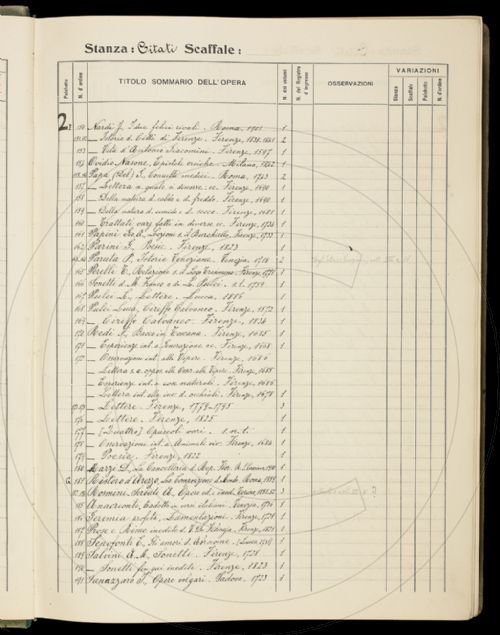 Stanza: Citati Scaffale:
Palchetto N. d'ordine TITOLO SOMMARIO DELL'OPERA N. dei volumi N. del Registro d'ingresso OSSERVAZIONI VARIAZIONI
Stanza Scaffale Palchetto N. d'ordine
2
150 Nardi J. I due felici rivali. Roma, 1901 1
Istoria d. Città di Firenze. Firenze, 2
153 — Vita d'Antonio Giacomini. Firenze, 1597 1
Ovidio Nasone, Epistole eroiche. Milano, 1
Papa (Del) G. Consulti medici. Roma, 1733 2
157 — Lettera a. quale n. diverse. ec. Firenze, 1
158 — Della natura d. caldo e d. freddo. Firenze, 1690 1
159 — Della natura d. umido e d. secco. Firenze, 1681 1
160 — Trattati vari fatti in diverse oc. Firenze, 1734 1
161 Papini Lezioni s. il Burchiello. Firenze, 1733 1
162 Parini G. Poesie. Firenze, 1823 1
Paruta P., Istorie Veneziane. Venezia, 1718 2
165 Perelli T. Relazione Firenze, 1
166 Sonetti d. M. Franco e di L. Pulci. s.l. 1759 1
167 Pulci L., Lettere. Lucca, 1886 1
168 Pulci Luca, Ciriffo Calvaneo. Firenze, 1572 1
169 — Ciriffo Calvaneo. Firenze, 1834 1
170 Redi F., Bacco in Toscana. Firenze, 1685 1
171 — Esperienze int. a Generazione ec. Firenze, 1668 1
172 — Osservazioni int. alle Vipere. Firenze, 1686
Lettera s. a. oppos. alle Osser. alle Vipere. Firenze, 1685
— Esperienze int. a cose naturali. Firenze, 1686
— Lettera int. alla inv. d. occhiali. Firenze, 1678 1
— Lettere. Firenze, 1779-1795 3
176 — Lettere. Firenze, 1825 1
177 — [Quattro] Opuscoli vari. s.n.t. 1
178 — Osservazioni int. a Animali viv. Firenze, 1684 1
179 — Poesie. Firenze, 1822 1
180 Marzi D., La Cancelleria d. Rep. Fior. 1
181 Ristoro d'Arezzo, La Composizione d. Mondo. Roma, 1859 1
Rosmini-Serbati A., Opere ed. e ined. 3
185 Anacreonte, tradotto in versi italiani. Venezia, 1736 1
186 Geremia profeta, Lamentazioni. Firenze, 1728 1
187 Prose e Rime inedite d. V. Da Filicaja. Firenze, 1821 1
188 Senofonte E., Gli amori d. Abrocome. 1
189 Salvini A. M., Sonetti. Firenze, 1728 1
190 — Sonetti fin qui inediti. Firenze, 1823 1
191 Sannazzaro J., Opere volgari. Padova, 1723 1